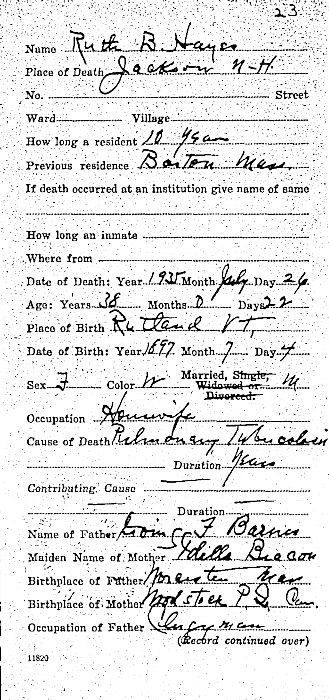 23
Name Ruth B. Hayes
Place of Death Jackson N-H.
No. Street
Ward Village
How long a resident 10 Years
Previous residence Boston Mass.
If death occurred at an institution give name of same
How long an inmate
Where from
Date of Death: Year 1935 Month July Day 26
Age: Years 38 Months 0 Days 22
Place of Birth Rutland VT,
Date of Birth: Year 1897 Month 7 Day 4
Sex F Color W Married, Single, Widowed or Divorced. M
Occupation Housewife
Cause of Death Pulmonary Tuberculosis
Duration Years
Contributing Cause
Duration
Name of Father F Barnes
Maiden Name of Mother Idella Beacon
Birthplace of Father Worcester Mass
Birthplace of Mother Woodstock P.Q. Can.
Occupation of Father Clergyman
(Record continued over)
11820